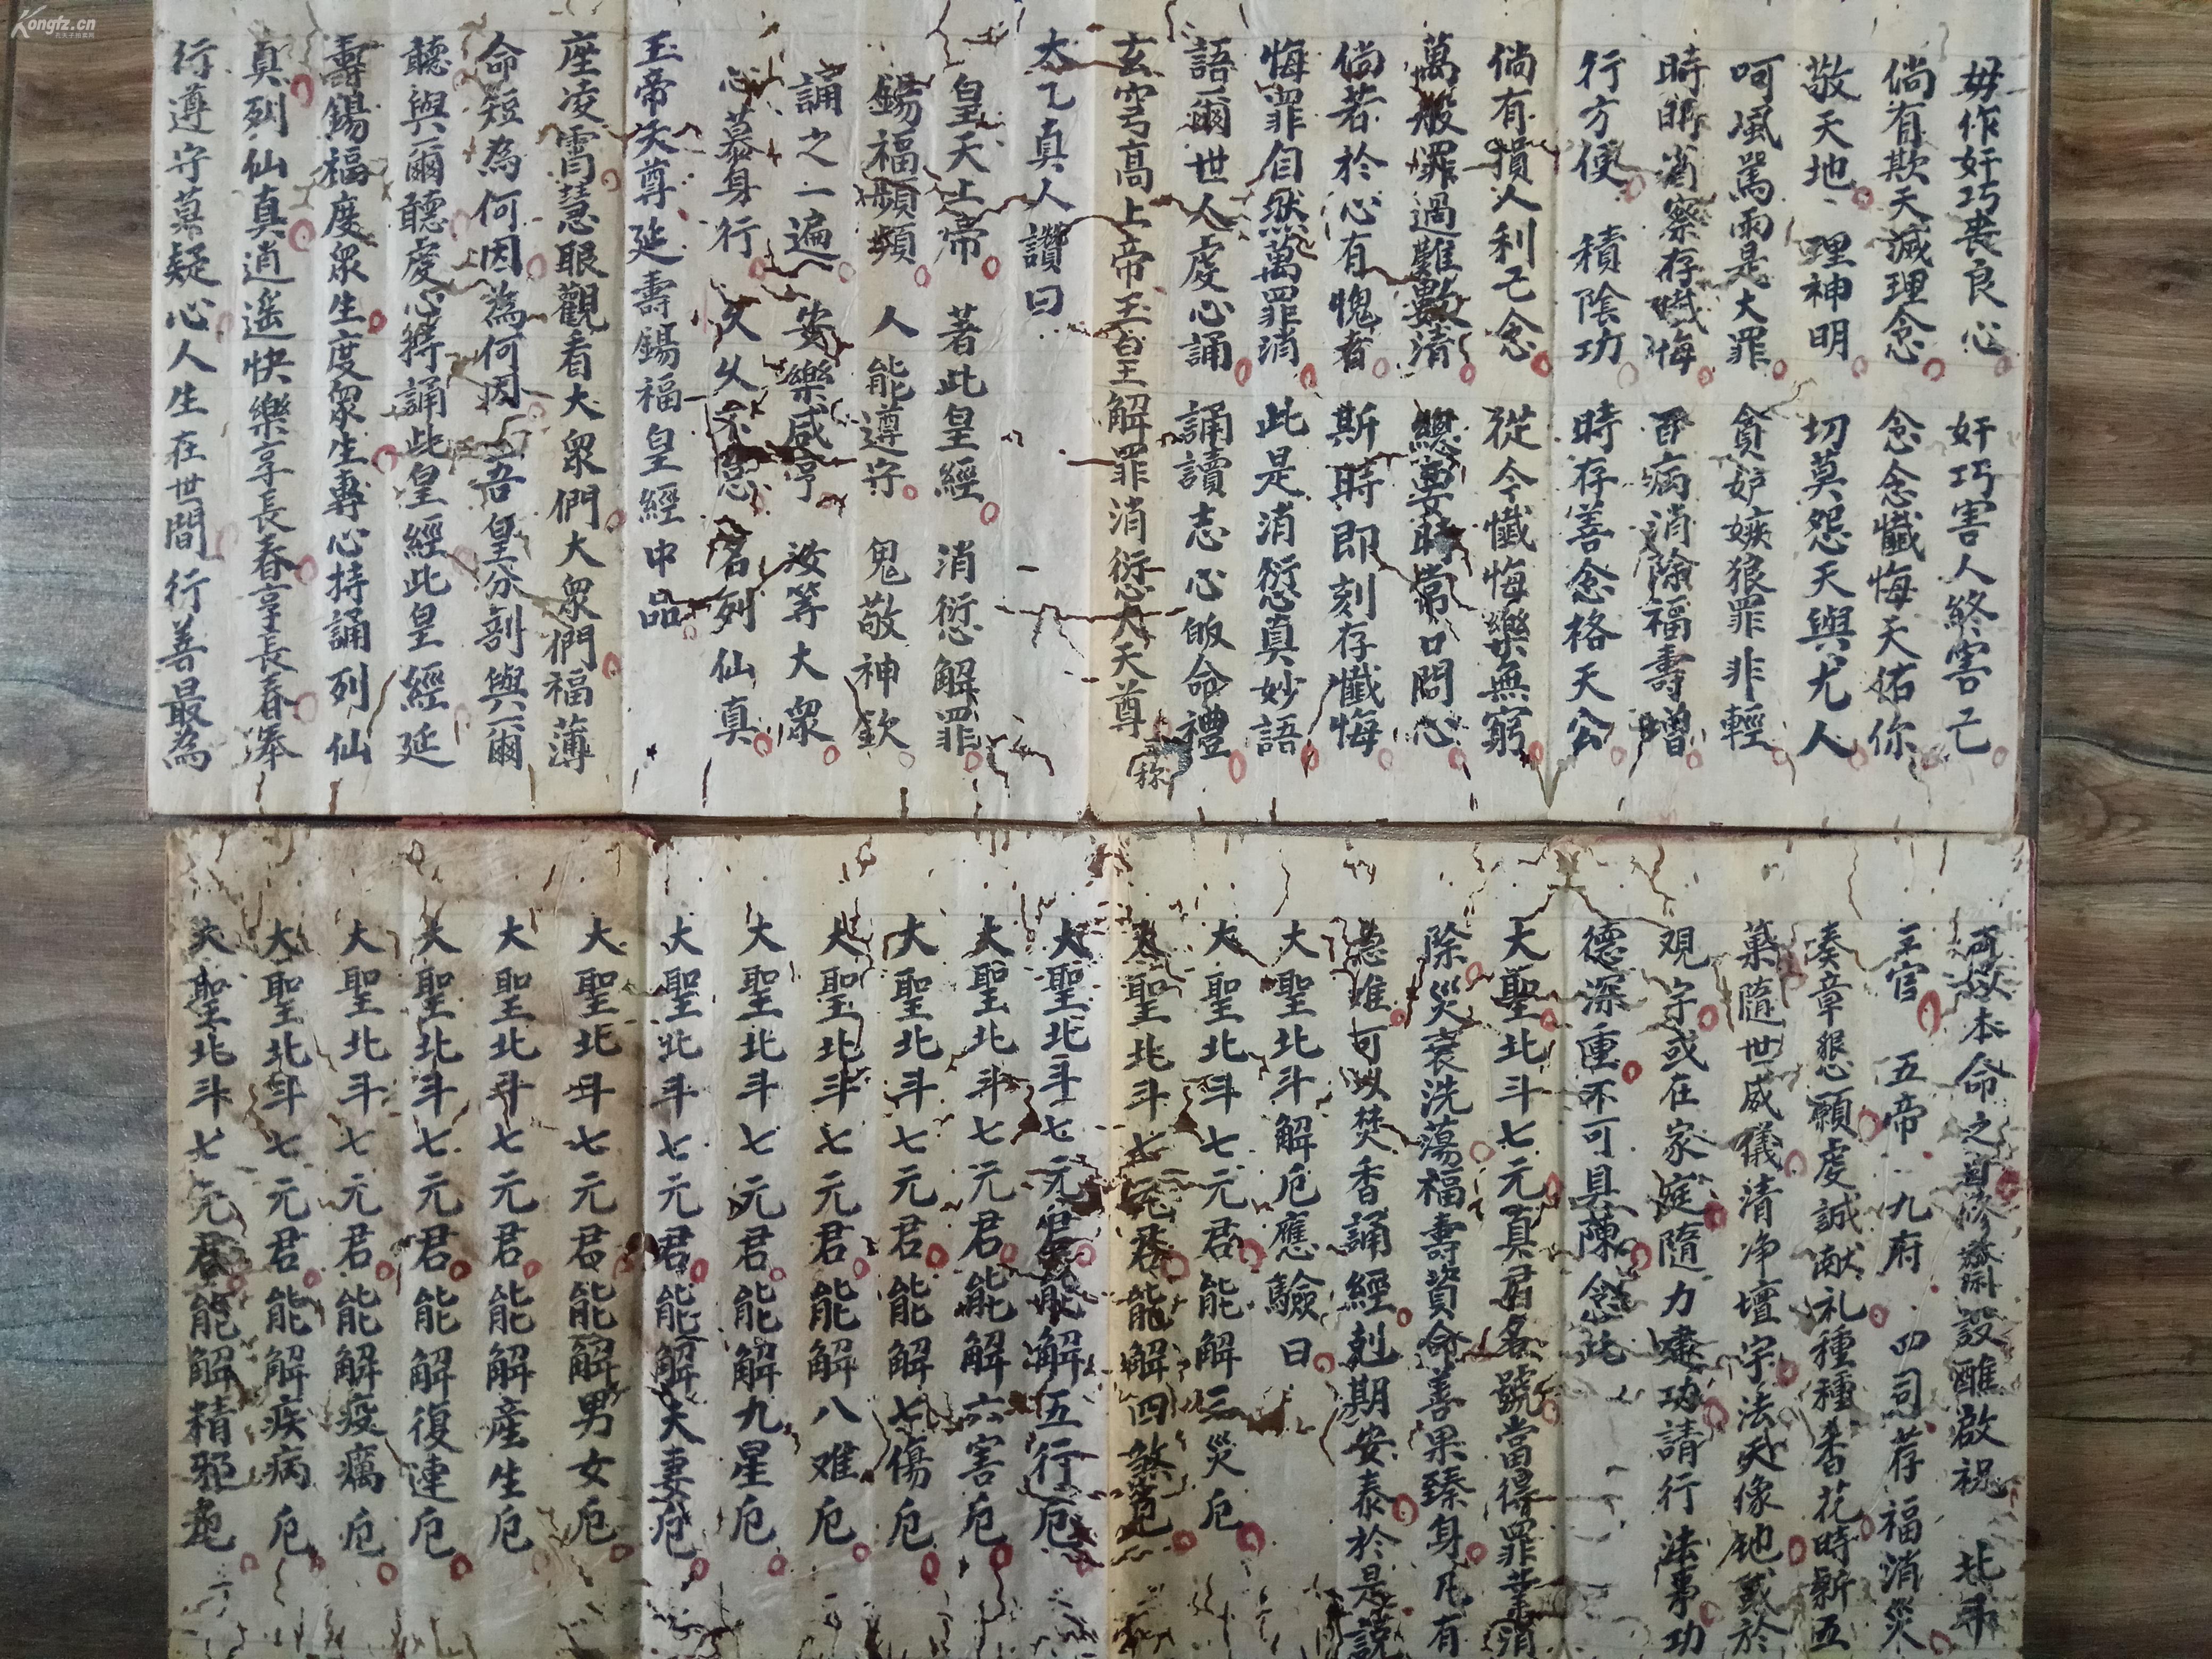 Kongfz.cn
毋作奸巧喪良心 奸巧害人終害己
倘有欺天滅理念 念念懺悔天佑你
敬天地 理神明 切莫怨天與尤人
呵風罵雨是大罪 貪妒嫉狠罪非輕
時時省察存懺悔 百病消除福壽增
行方便 積陰功 時存善念格天公
倘有損人利己念 從今懺悔樂無窮
萬般罪過難數清 總要時常口問心
倘若於心有愧者 斯時即刻存懺悔
悔罪自然萬罪消 此是消愆真妙語
語爾世人虔心誦 誦讀志心皈命禮
玄穹高上帝玉皇解罪消愆大天尊 稱
太乙真人讚曰
皇天上帝 著此皇經 消愆解罪
錫福頻頻 人能遵守 鬼敬神欽
誦之一遍 安樂咸亨 汝等大眾
心慕身行 久久不怠 名列仙真
玉帝天尊延壽錫福皇經中品
座凌霄慧眼觀看大眾們大眾們福薄
命短為何因為何因吾皇分剖與爾
聽與爾聽虔心將誦此皇經此皇經延
壽錫福度眾生度眾生專心持誦列仙
真列仙真逍遙快樂享長春享長春奉
行遵守莫疑心人生在世間行善最為
本命之日修齋設醮啟祝 北斗
三官 五帝 九府 四司荐福消災
奏章懇願虔誠献礼種種香花時新五
菓隨世威儀清净壇宇法天像地或於
观宇或在家庭隨力建功請行法事功
德深重不可具陳念此
大聖北斗七元真君名號當得罪業消
除災衰洗蕩福壽資命善果臻身凡有
急难可以焚香誦經剋期安泰於是説
大聖北斗解厄應驗曰
大聖北斗七元君能解三災厄
大聖北斗七元君能解四煞厄
大聖北斗七元君能解五行厄
大聖北斗七元君能解六害厄
大聖北斗七元君能解七傷厄
大聖北斗七元君能解八难厄
大聖北斗七元君能解九星厄
大聖北斗七元君能解夫妻厄
大聖北斗七元君能解男女厄
大聖北斗七元君能解産生厄
大聖北斗七元君能解復連厄
大聖北斗七元君能解疫癘厄
大聖北斗七元君能解疾病厄
大聖北斗七元君能解精邪厄